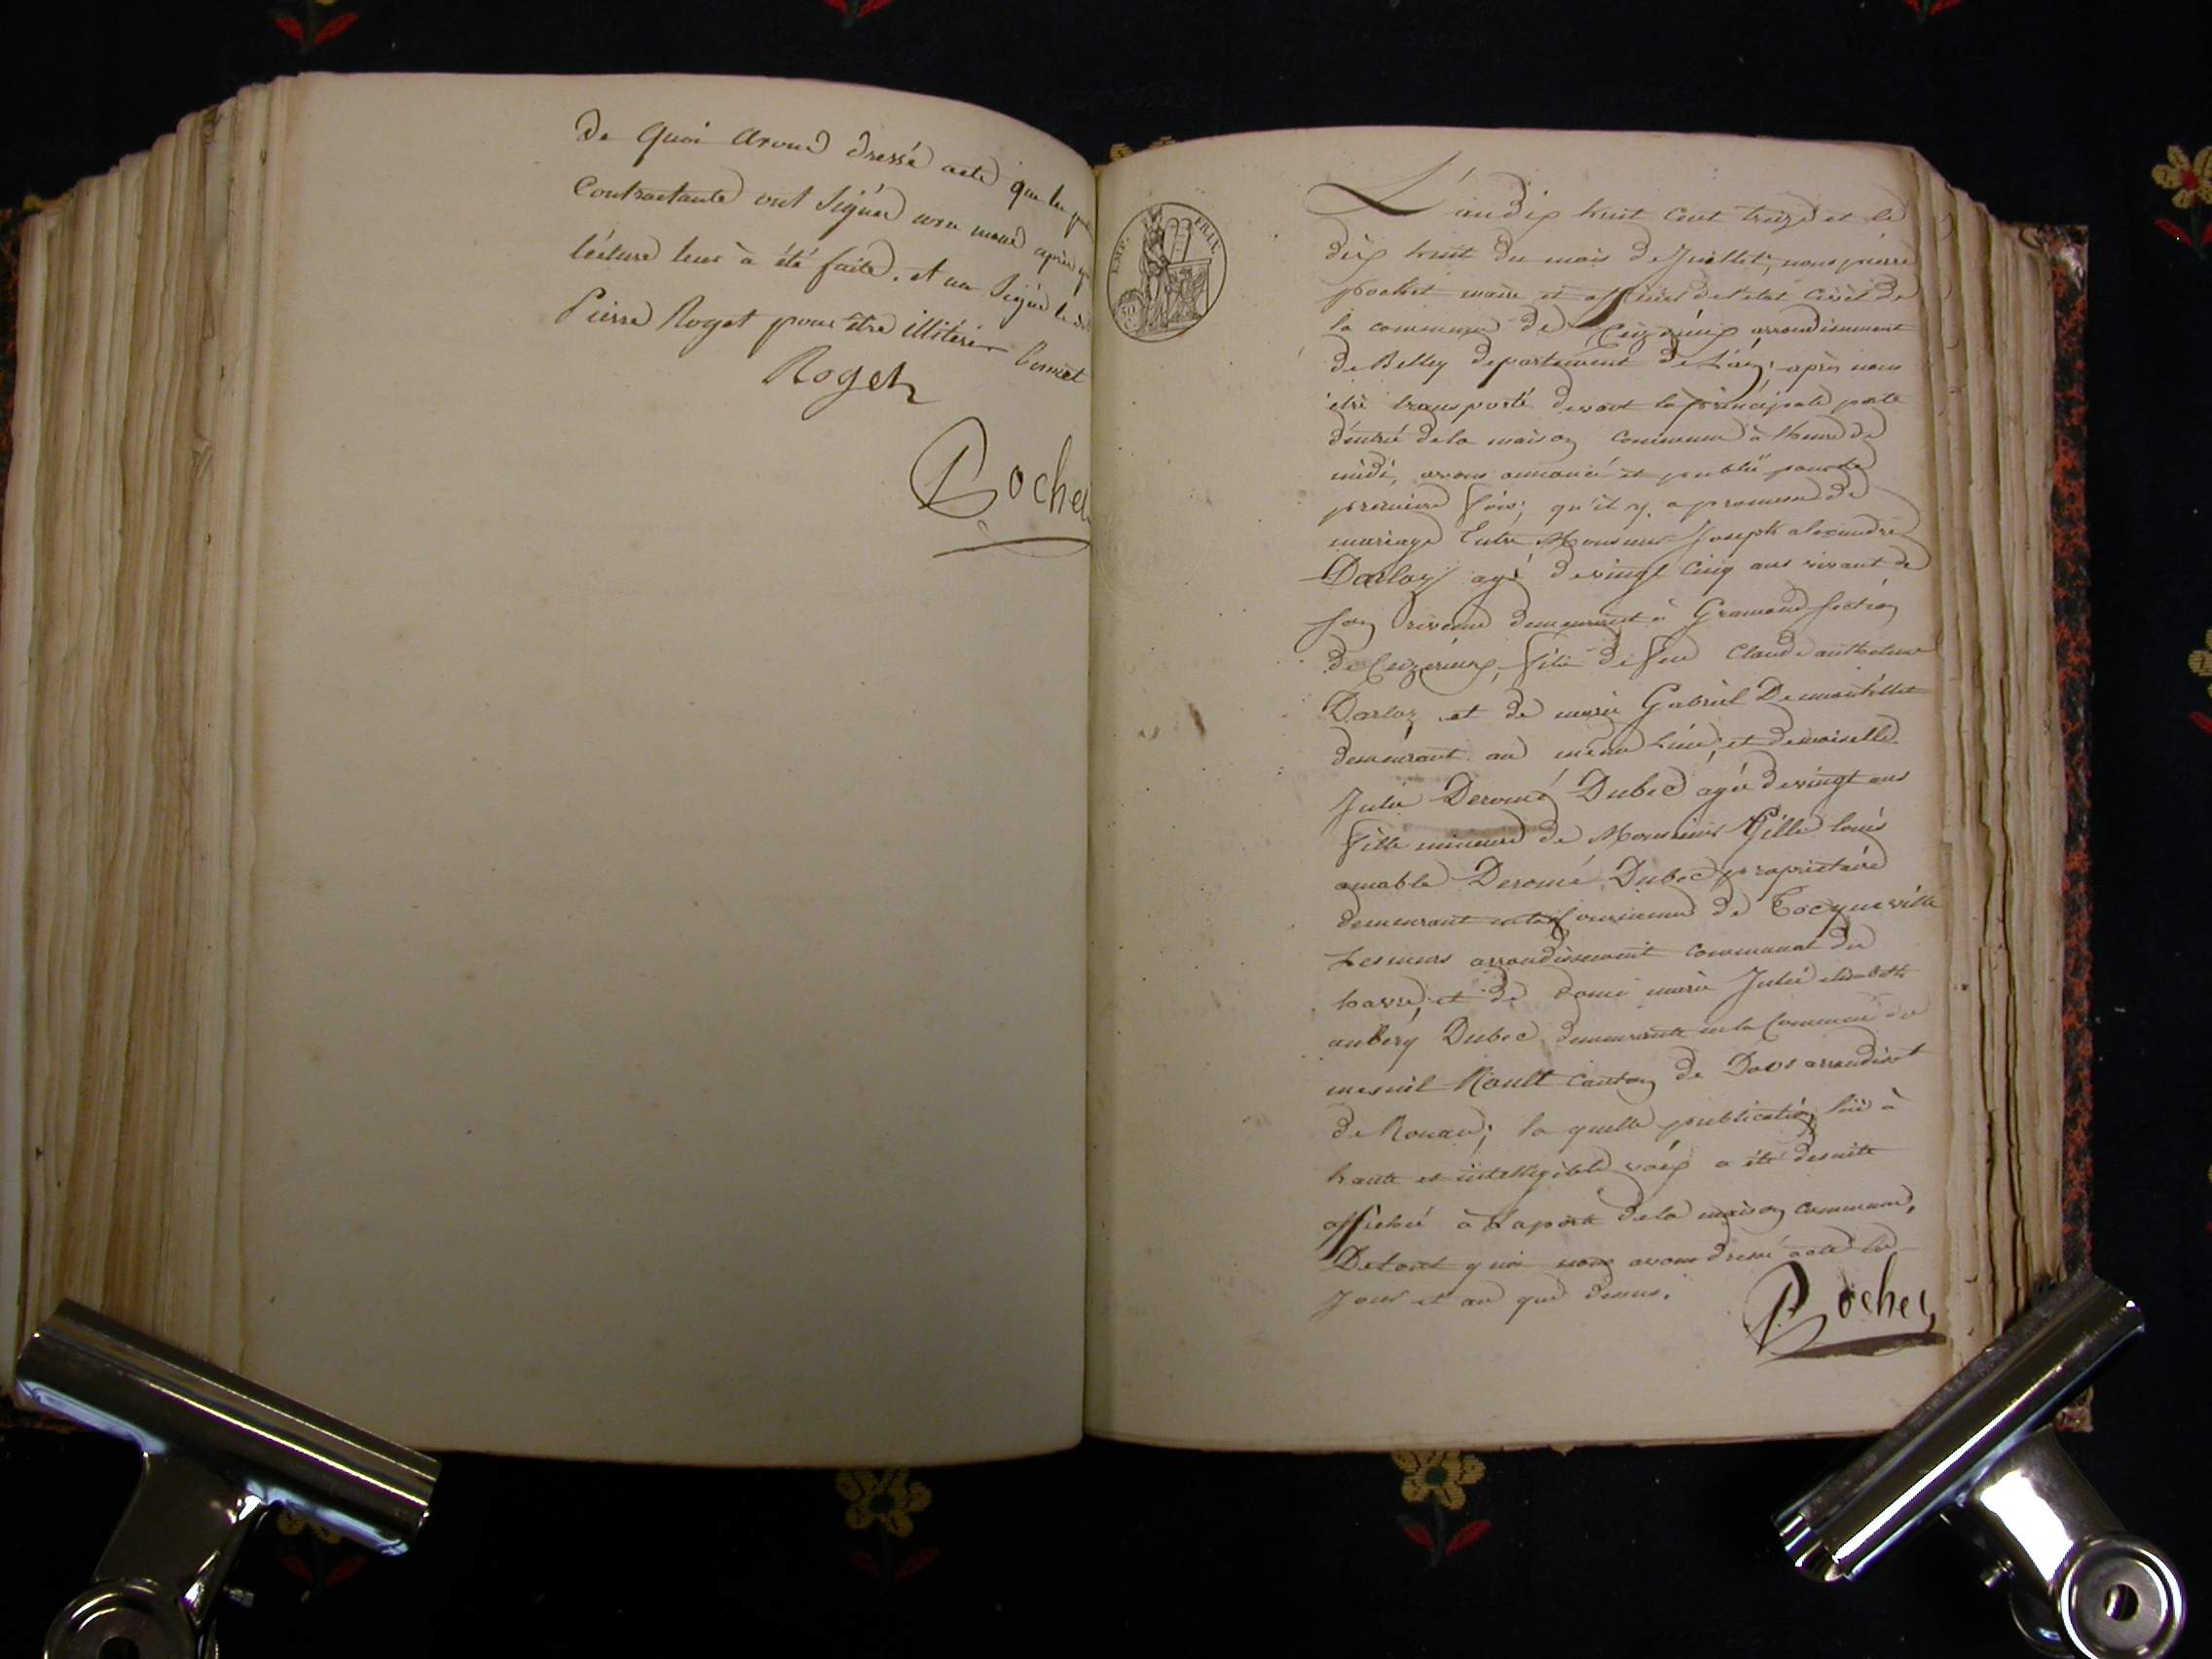 De Quoi avond dressé acte que les
Contractants ont signés avec nous après
lécture leur à été faite. et non Signé le
Pierre Roget pour être illitéré Bonnet
Roget
Rochet
EMP. FRAN.
50
L'an dix huit cent treize et le
dix huit du mois de Juillet, nous pierre
Rochet maire et officier de l'etat Civil de
la commune de Ceizérieux arrondissement
de Belley departement de L'ain, après nous
etre transporté devant la principale porte
d'entrée de la maison commune à lheure de
midi, avons annoncé et publié pour la
premiere fois, qu'il y a promesse de
mariage Entre Monsieur Joseph alexandre
Darloz agé de vingt cinq ans vivant de
son revenu demeurant à Gramond section
de Ceizérieux, fils de feu Claude anthelme
Darloz et de marie Gabriel Demontillet
demeurant au même Lieu, et demoiselle
Julie Deromé Dubec agée de vingt ans
fille mineure de Monsieur Gille louis
amable Deromé Dubec propriétaire
demeurant en la Commune de Tocqueville
Lesmurs arrondissement communal du
havre, et de dame marie Julie elisabeth
aubery Dubec demeurante en la Commune de
mesnil Raoult canton de Doos arrondisst
de Rouen; la quelle publication lue à
haute et intelligible voix a été desuite
affiché à Laporte de la maison commune,
De tout quoi nous avons dressé acte les
Jour et an que dessus.
Rochet